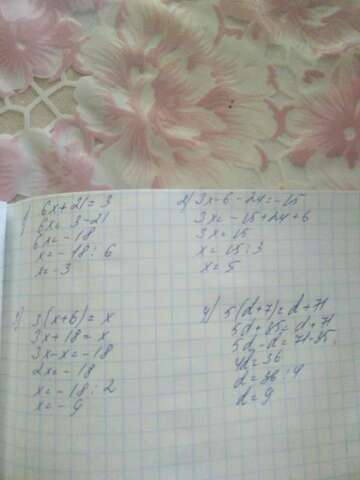 1) 6x+21=3
6x=3-21
6x=-18
x=-18:6
x=-3
2) 3x-6-24=-15
3x=-15+24+6
3x=15
x=15:3
x=5
3) 3(x+6)=x
3x+18=x
3x-x=-18
2x=-18
x=-18:2
x=-9
4) 5(d+7)=d+71
5d+35=d+71
5d-d=71-35
4d=36
d=36:4
d=9